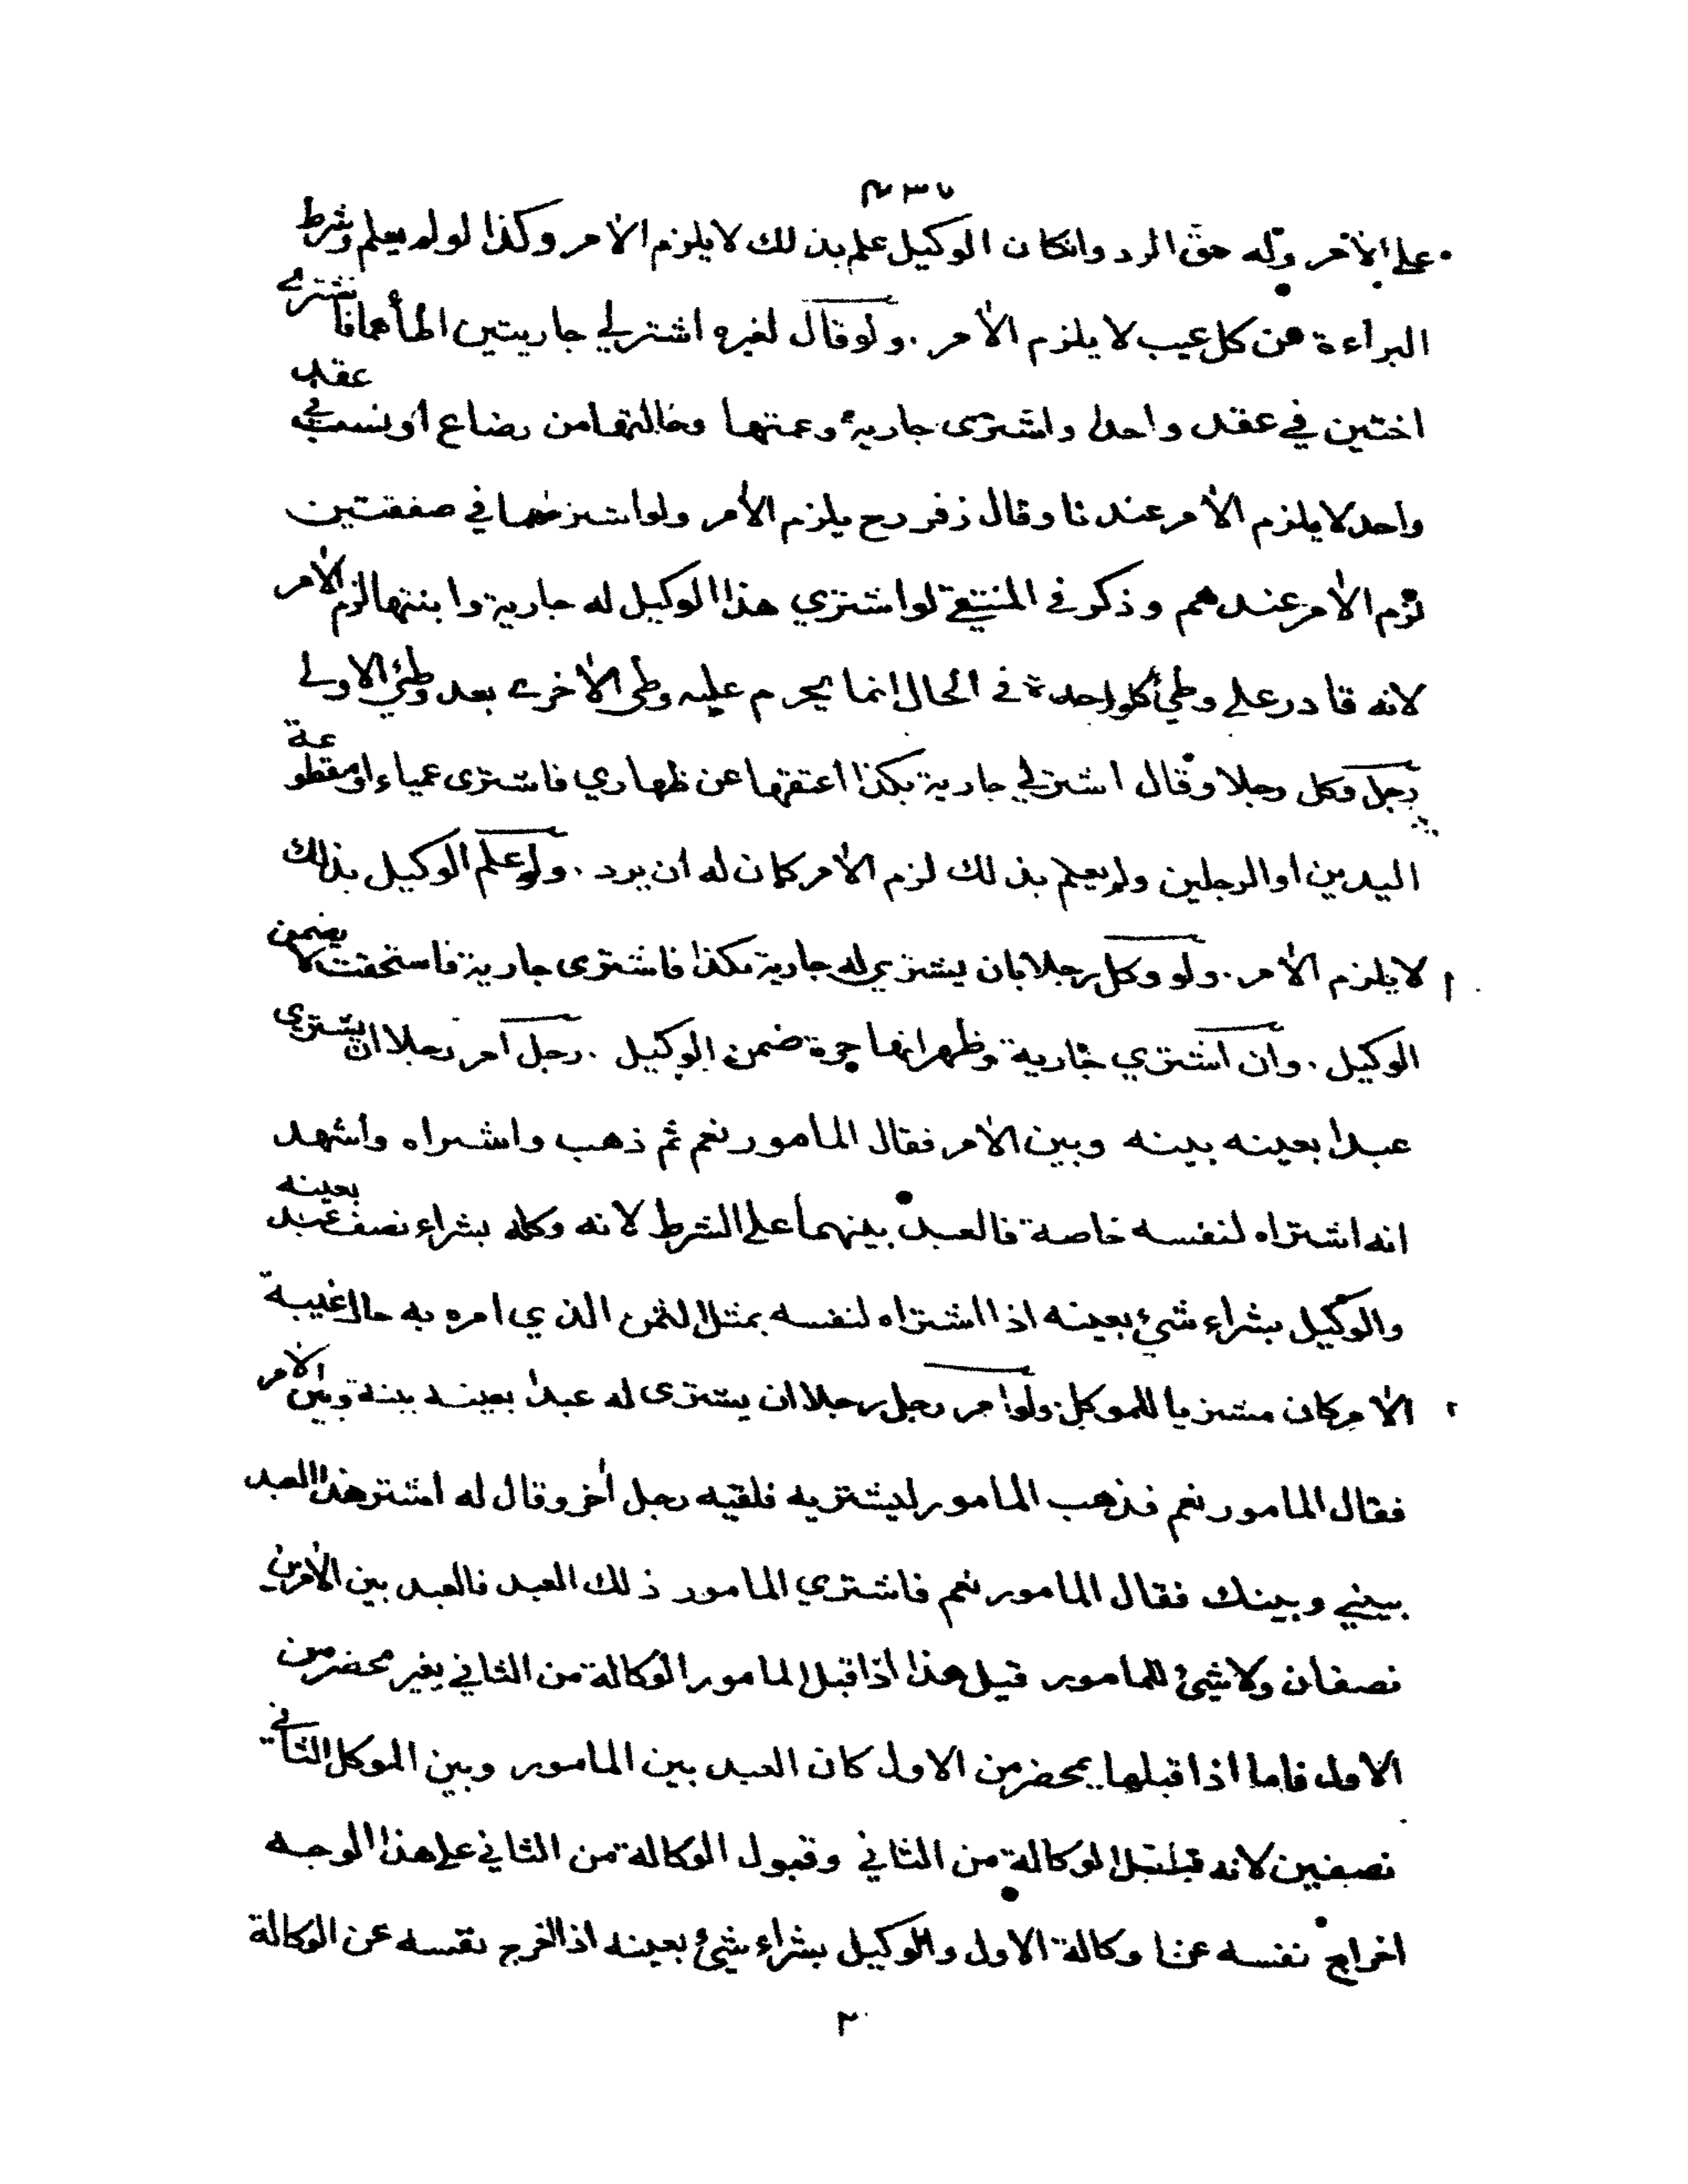 على الآمر وله حق الرد وانكان الوكيل علم بذلك لا يلزم الآمر وكذا لو لم يعلم وشرط
البراءة من كل عيب لا يلزم الآمر . ولو قال لغيره اشتر لي جاريتين اطأهما فاشترى
اختين في عقد واحد او اشترى جارية وعمتها وخالتها من رضاع او نسب في عقد
واحد لا يلزم الآمر عندنا وقال زفر رح يلزم الأمر ولو اشتراهما في صفقتين
لزم الآمر عندهم وذكر في المنتقى لو اشترى هذا الوكيل له جارية وابنتها لزم الآمر
لانه قادر على وطئ كل واحدة في الحال انما يحرم عليه وطئ الأخرى بعد وطئ الاولى
رجل وكل رجلا وقال اشتر لي جارية بكذا اعتقها عن ظهاري فاشترى عمياء او مقطوعة
اليدين او الرجلين ولم يعلم بذلك لزم الآمر كان له ان يرد . ولو علم الوكيل بذلك
لا يلزم الآمر . ولو وكل رجلا بان يشتري له جارية بكذا فاشترى جارية فاستحقت لا يضمن
الوكيل . وان اشترى جارية وظهر انها حرة ضمن الوكيل . رجل امر رجلا ان يشتري
عبدا بعينه بينه وبين الآمر فقال المامور نعم ثم ذهب واشتراه واشهد
انه اشتراه لنفسه خاصة فالعبد بينهما على الشرط لانه وكله بشراء نصف عبد بعينه
والوكيل بشراء شئ بعينه اذا اشتراه لنفسه بمثل الثمن الذي امره به حال غيبة
الآمر كان مشتريا للموكل . ولو امر رجل رجلا ان يشترى له عبدا بعينه بينه وبين الآمر
فقال المامور نعم فذهب المامور ليشتريه فلقيه رجل أخر وقال له اشتر هذا العبد
بيني وبينك فقال المامور نعم فاشتري المامور ذلك العبد فالعبد بين الآمرين
نصفان ولا شئ للمامور قيل هذا اذا قبل المامور الوكالة من الثاني بغير محضر من
الاول فاما اذا قبلها بمحضر من الاول كان العبد بين المامور وبين الموكل الثاني
نصفين لانه قبل الوكالة من الثاني وقبول الوكالة من الثاني على هذا الوجه
اخراج نفسه عن وكالة الاول والوكيل بشراء شئ بعينه اذا اخرج نفسه عن الوكالة
٢